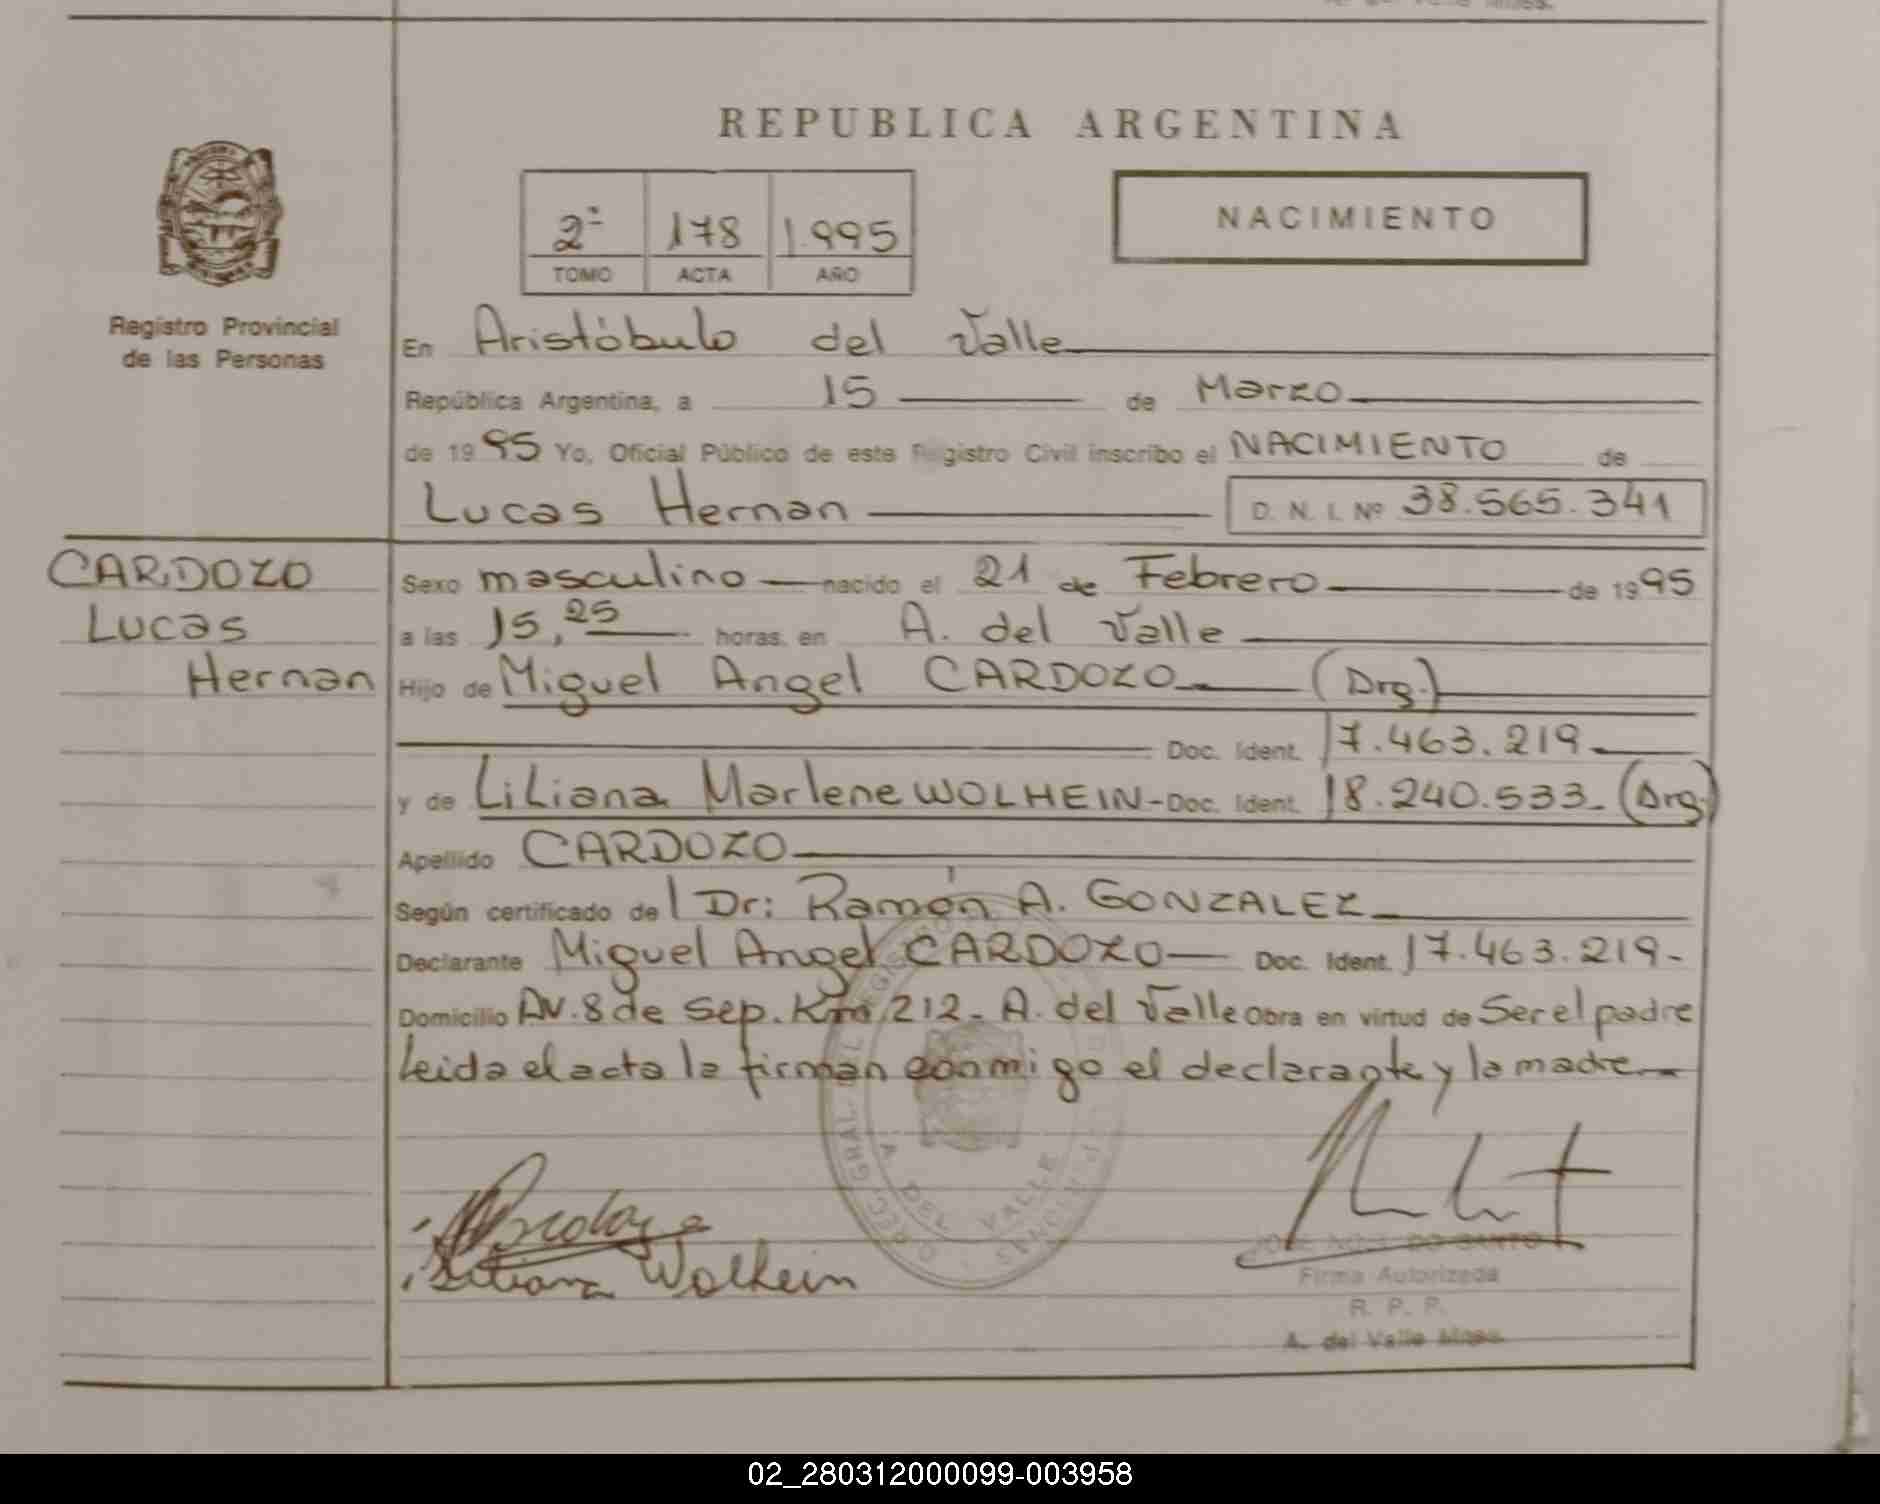 REPUBLICA ARGENTINA
2º 178 1.995
TOMO ACTA AÑO
NACIMIENTO
Registro Provincial
de las Personas
En Aristóbulo del Valle
República Argentina, a 15 de Marzo
de 1995 Yo, Oficial Público de este Registro Civil inscribo el NACIMIENTO de
Lucas Hernan D. N. I. Nº 38.565.341
CARDOZO
Lucas
Hernan
Sexo masculino nacido el 21 de Febrero de 1995
a las 15,25 horas, en A. del Valle
Hijo de Miguel Angel CARDOZO (Arg.)
Doc. Ident. 17.463.219
y de Liliana Marlene WOLHEIN - Doc. Ident. 18.240.533 - (Arg.)
Apellido CARDOZO
Según certificado del Dr: Ramón A. GONZALEZ
Declarante Miguel Angel CARDOZO Doc. Ident. 17.463.219-
Domicilio AV. 8 de Sep. Km 212 - A. del Valle Obra en virtud de Ser el padre
Leida el acta la firman conmigo el declarante y la madre
A. DEL VALLE
Liliana Wolhein
Firma Autorizada
R. P. P.
A. del Valle Mnes.
02_280312000099-003958